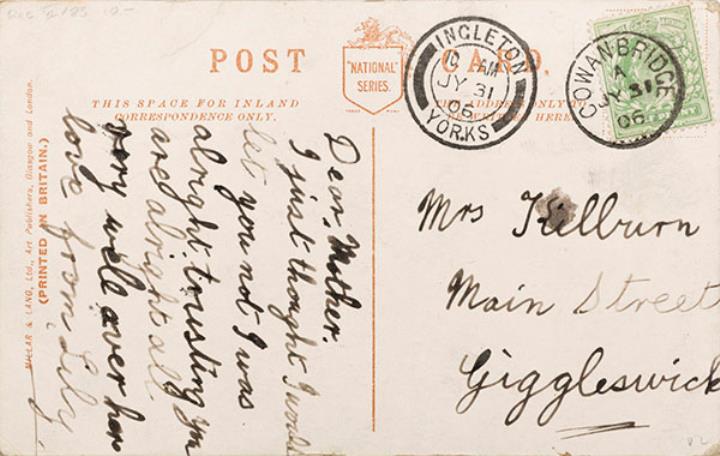 POST CARD.
"NATIONAL"
SERIES.
THIS SPACE FOR INLAND
CORRESPONDENCE ONLY.
THE ADDRESS ONLY TO
HERE
INGLETON
10 AM
JY 31
06
YORKS
COWANBRIDGE
A
JY 31
06
Dear Mother.
I just thought I would
let you not I was
alright trusting you
are alright all
very well over here
love from Lily
Mrs Kilburn
Main Street
Giggleswick
MILLAR & LANG, Ltd., Art Publishers, Glasgow and London.
(PRINTED IN BRITAIN.)